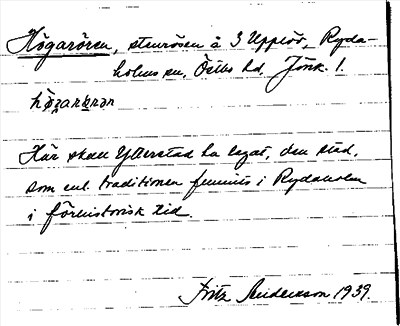 Högarören, stenrösen å 3 Upplöv, Ryda-
holms sn, Östbo hd, Jönk. l.
Här skall Ytterstad ha legat, den stad,
som enl. traditionen funnits i Rydaholm
i förhistorisk tid.
Fritz Anderson 1939.